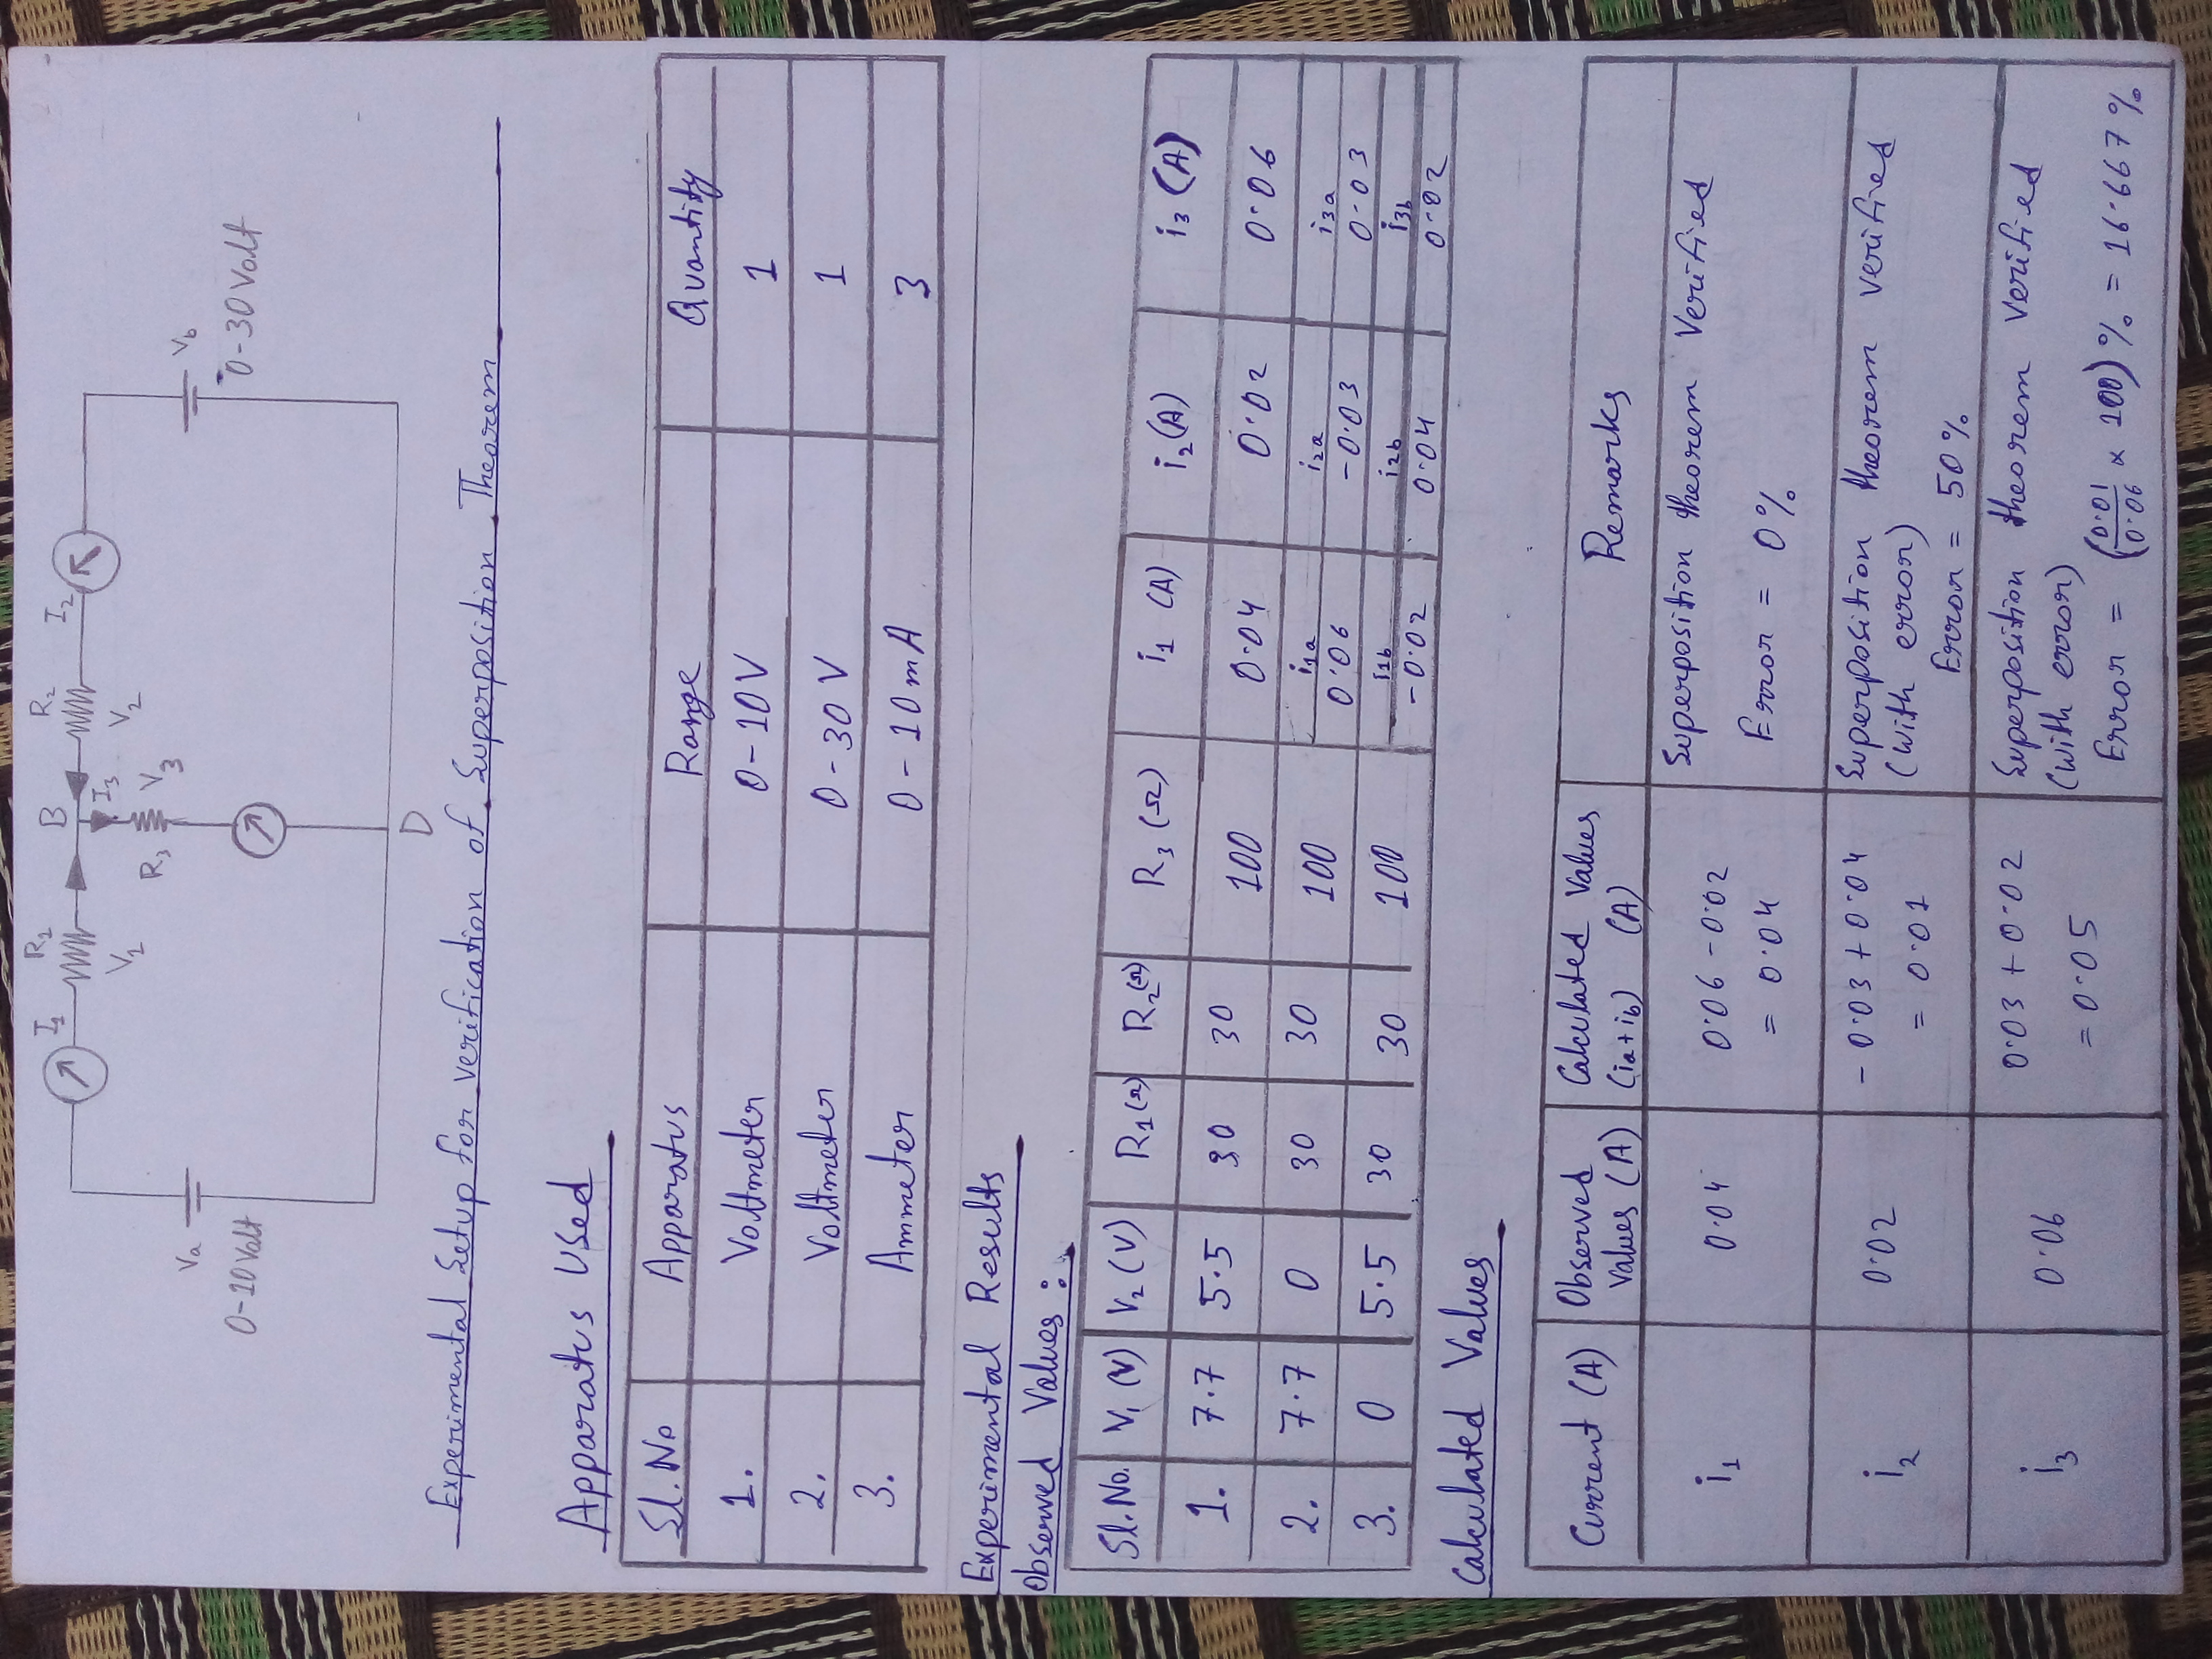 I1 R1 B R2 I2
I3
V1 V2
R3 V3
Va Vb
0-10 Volt 0-30 Volt
D
Experimental Setup for verification of Superposition Theorem
Apparatus Used
Sl. No Apparatus Range Quantity
1. Voltmeter 0-10V 1
2. Voltmeter 0-30 V 1
3. Ammeter 0-10mA 3
Experimental Results
Observed Values:
Sl. No. V1 (V) V2 (V) R1 (Ω) R2 (Ω) R3 (Ω) i1 (A) i2 (A) i3 (A)
1. 7.7 5.5 30 30 100 0.04 0.02 0.06
i1a i2a i3a
2. 7.7 0 30 30 100 0.06 -0.03 0.03
i1b i2b i3b
3. 0 5.5 30 30 100 -0.02 0.04 0.02
Calculated Values
Current (A) Observed Values (A) Calculated Values (ia+ib) (A) Remarks
i1 0.04 0.06 - 0.02
= 0.04
Superposition theorem Verified
Error = 0%
i2 0.02 -0.03 + 0.04
= 0.01
Superposition theorem verified
(with error)
Error = 50%
i3 0.06 0.03 + 0.02
= 0.05
Superposition theorem verified
(with error)
Error = (0.01/0.06 × 100) % = 16.667%